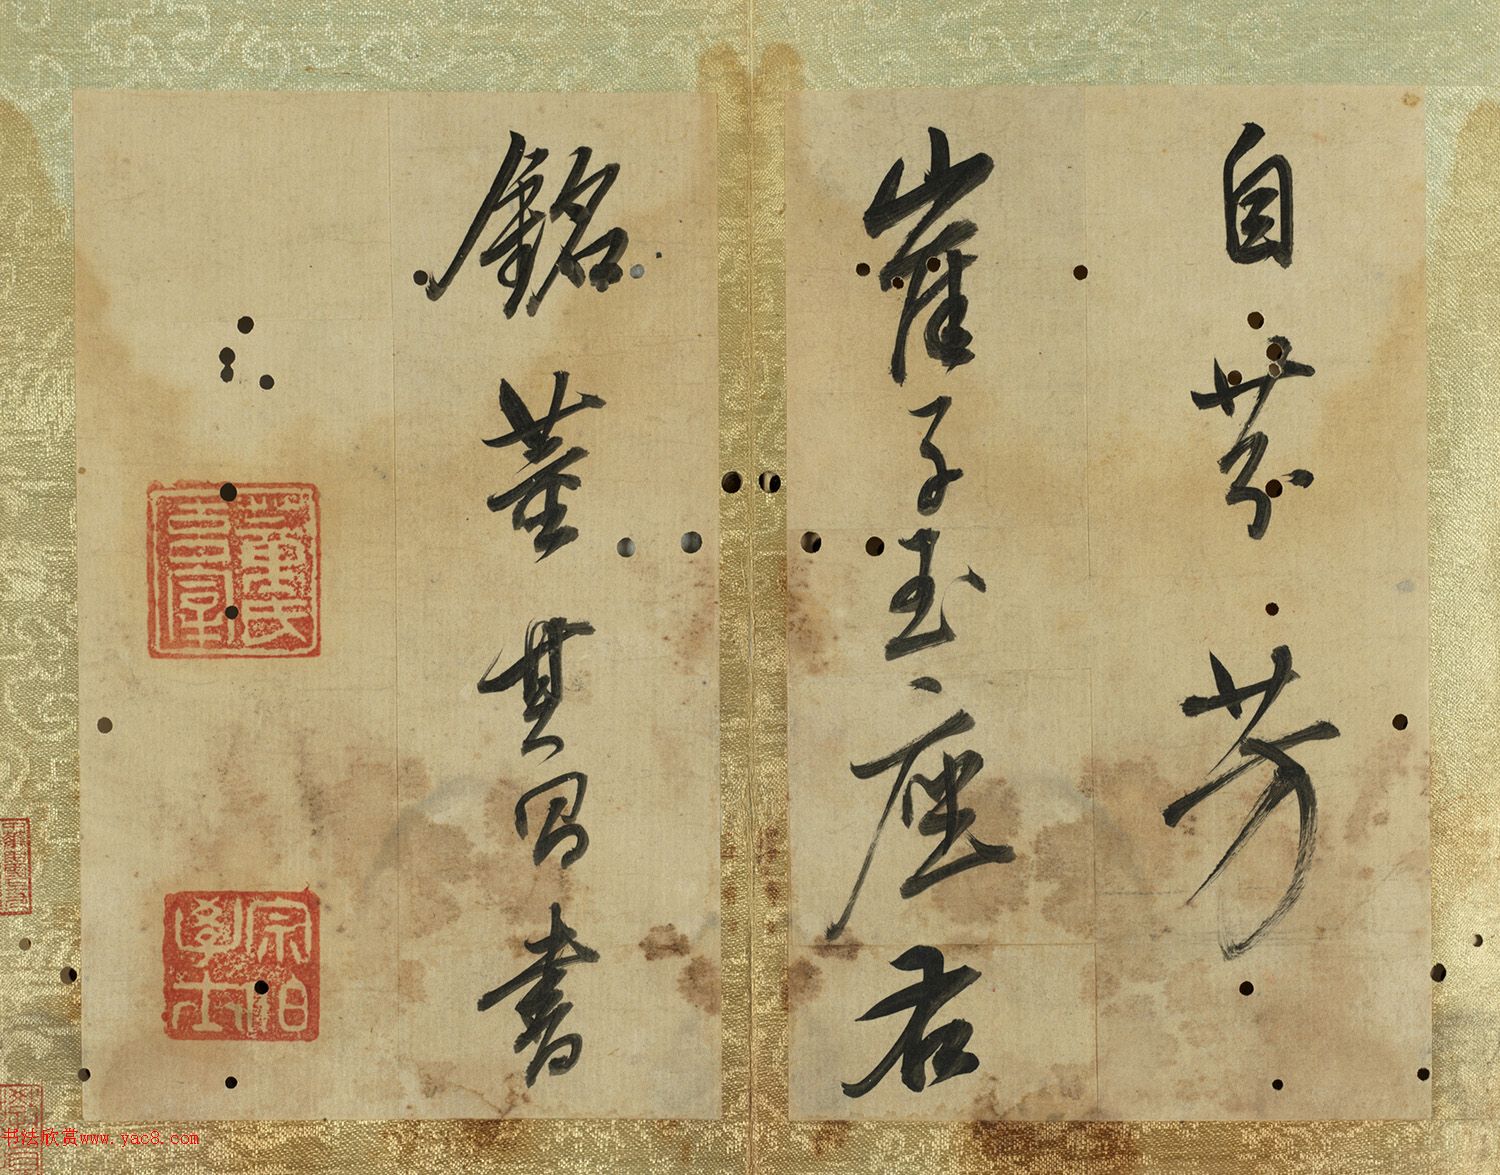 自芬芳
崔子玉座右
銘董其昌書
董氏玄宰
宗伯學士
书法欣赏www.yac8.com